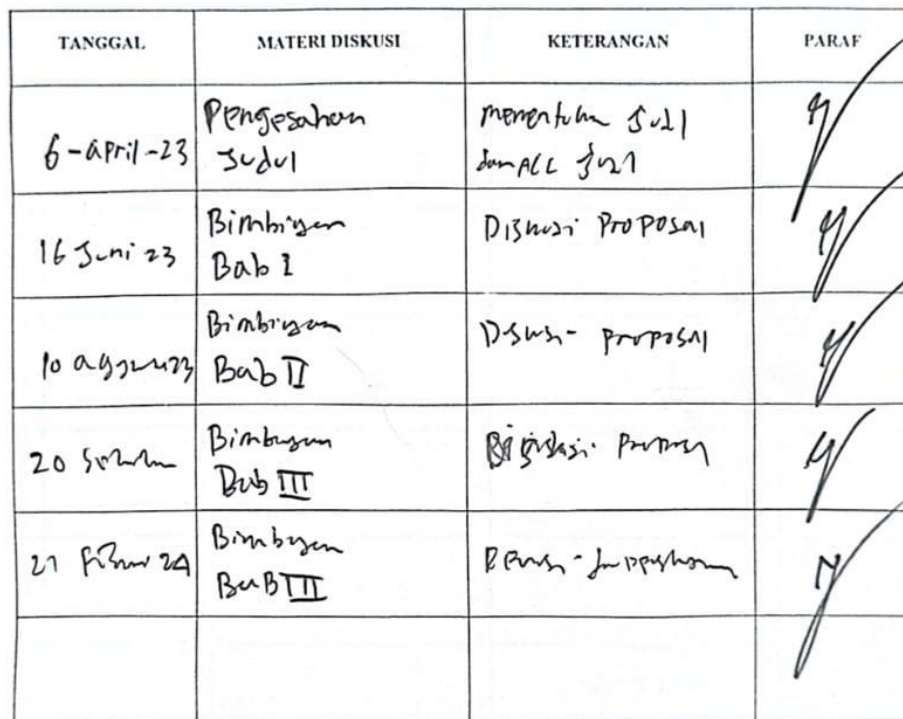 TANGGAL MATERI DISKUSI KETERANGAN PARAF
6-April-23 Pengesahan Judul menentukan Judul dan ACC Judul
16 Juni 23 Bimbingan Bab I Diskusi Proposal
10 Bimbingan Bab II Diskusi Proposal
20 Bimbingan Bab III
24 Bimbingan BaB III